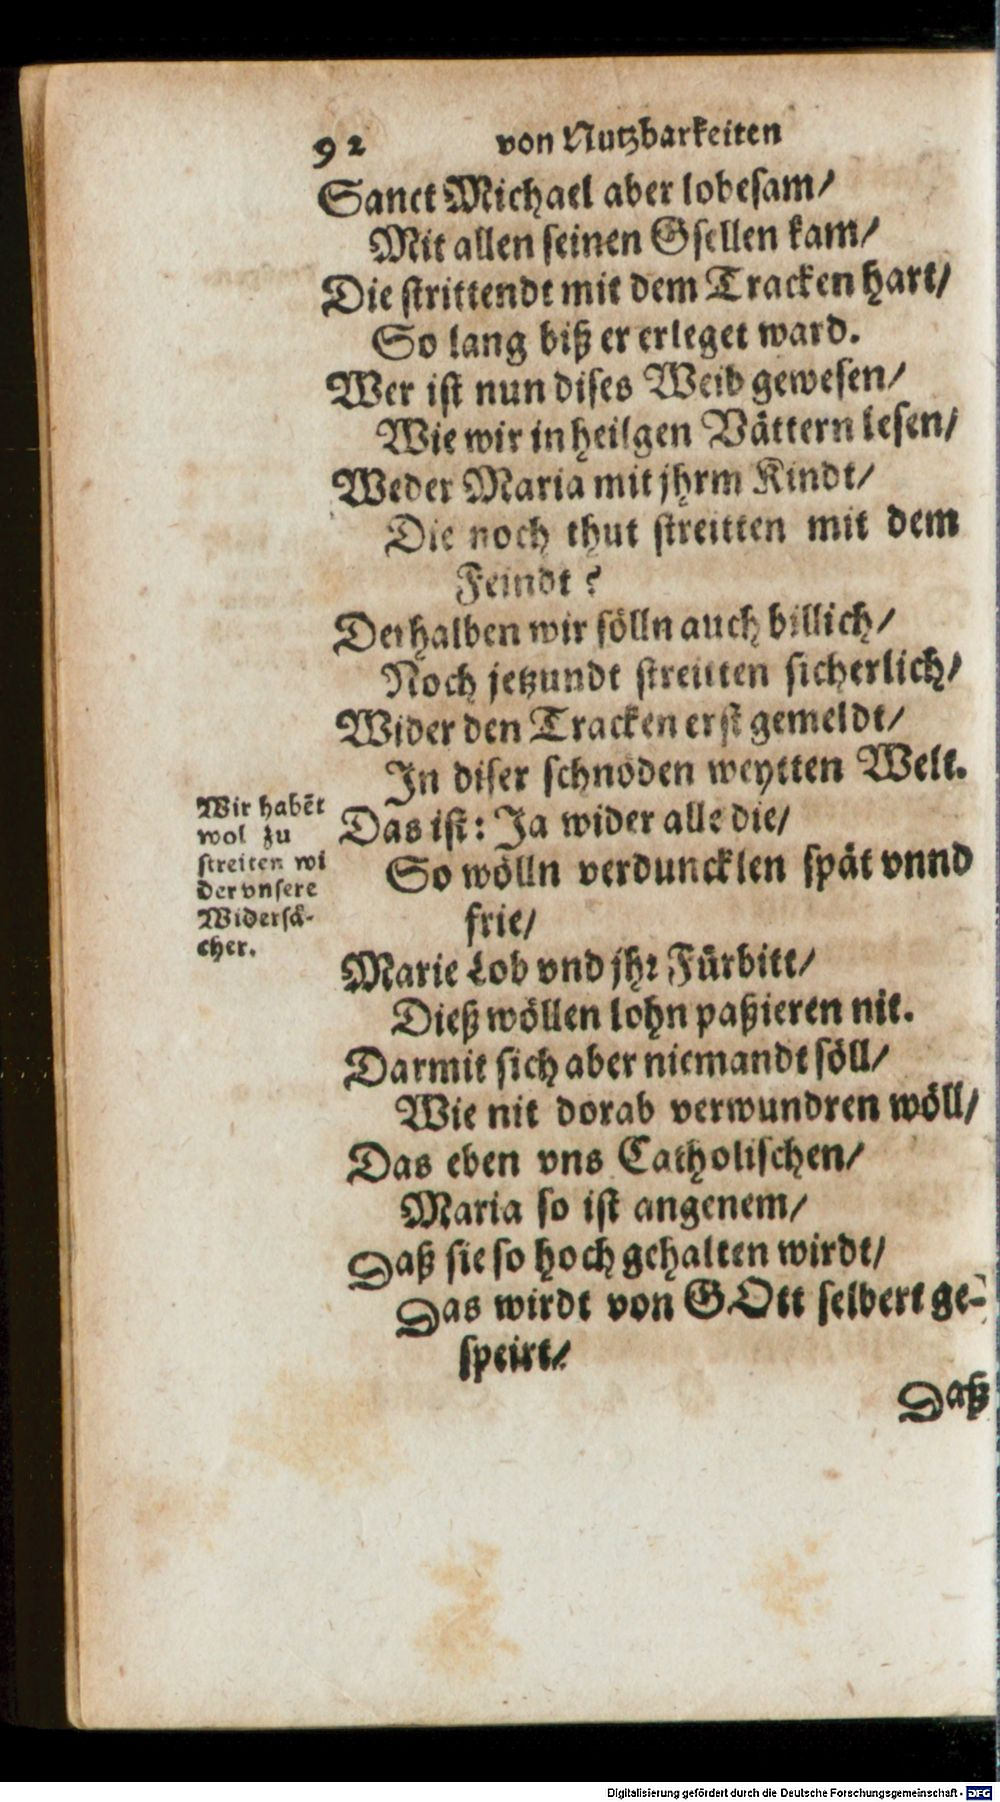 92 von Nutzbarkeiten
Sanct Michael aber lobesam/
Mit allen seinen Gsellen kam/
Die strittendt mit dem Tracken hart/
So lang biß er erleget ward.
Wer ist nun dises Weib gewesen/
Wie wir in heilgen Vättern lesen/
Weder Maria mit jhrm Kindt/
Die noch thut streitten mit dem
Feindt?
Derhalben wir sölln auch billich/
Noch jetzundt streitten sicherlich/
Wider den Tracken erst gemeldt/
In diser schnöden weytten Welt.
Wir habẽt
wol zu
streiten wi
der vnsere
Widersä-
cher.
Das ist: Ja wider alle die/
So wölln verduncklen spät vnnd
frie/
Marie Lob vnd jhr Fürbitt/
Dieß wöllen lohn paßieren nit.
Darmit sich aber niemandt söll/
Wie nit dorab verwundren wöll/
Das eben vns Catholischen/
Maria so ist angenem/
Daß sie so hoch gehalten wirdt/
Das wirdt von GOtt selbert ge-
speirt/
Daß
Digitalisierung gefördert durch die Deutsche Forschungsgemeinschaft - DFG